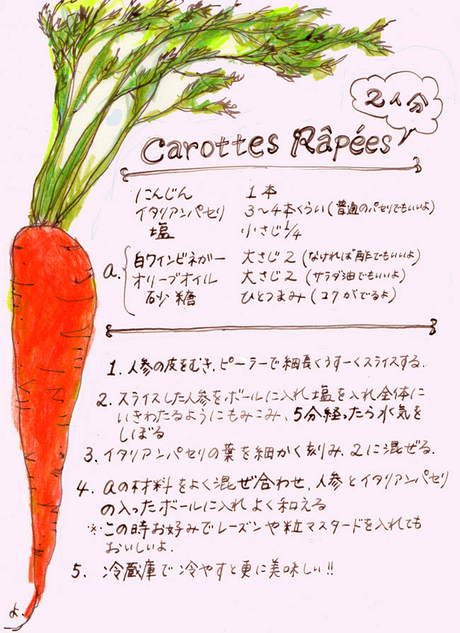 2人分
Carottes Râpées
にんじん 1本
イタリアンパセリ 3〜4本くらい(普通のパセリでもいいよ)
塩 小さじ1/4
a. 白ワインビネガー 大さじ2(なければ酢でもいいよ)
オリーブオイル 大さじ2(サラダ油でもいいよ)
砂糖 ひとつまみ(コクがでるよ)
1. 人参の皮をむき、ピーラーで細長くうすーくスライスする.
2. スライスした人参をボールに入れ塩を入れ全体に
いきわたるようにもみこみ、5分経ったら水気を
しぼる
3、イタリアンパセリの葉を細かく刻み、2に混ぜる.
4. aの材料をよく混ぜ合わせ、人参とイタリアンパセリ
の入ったボールに入れよく和える
※この時お好みでレーズンや粒マスタードを入れても
おいしいよ.
5. 冷蔵庫で冷やすと更に美味しい!!
よ.